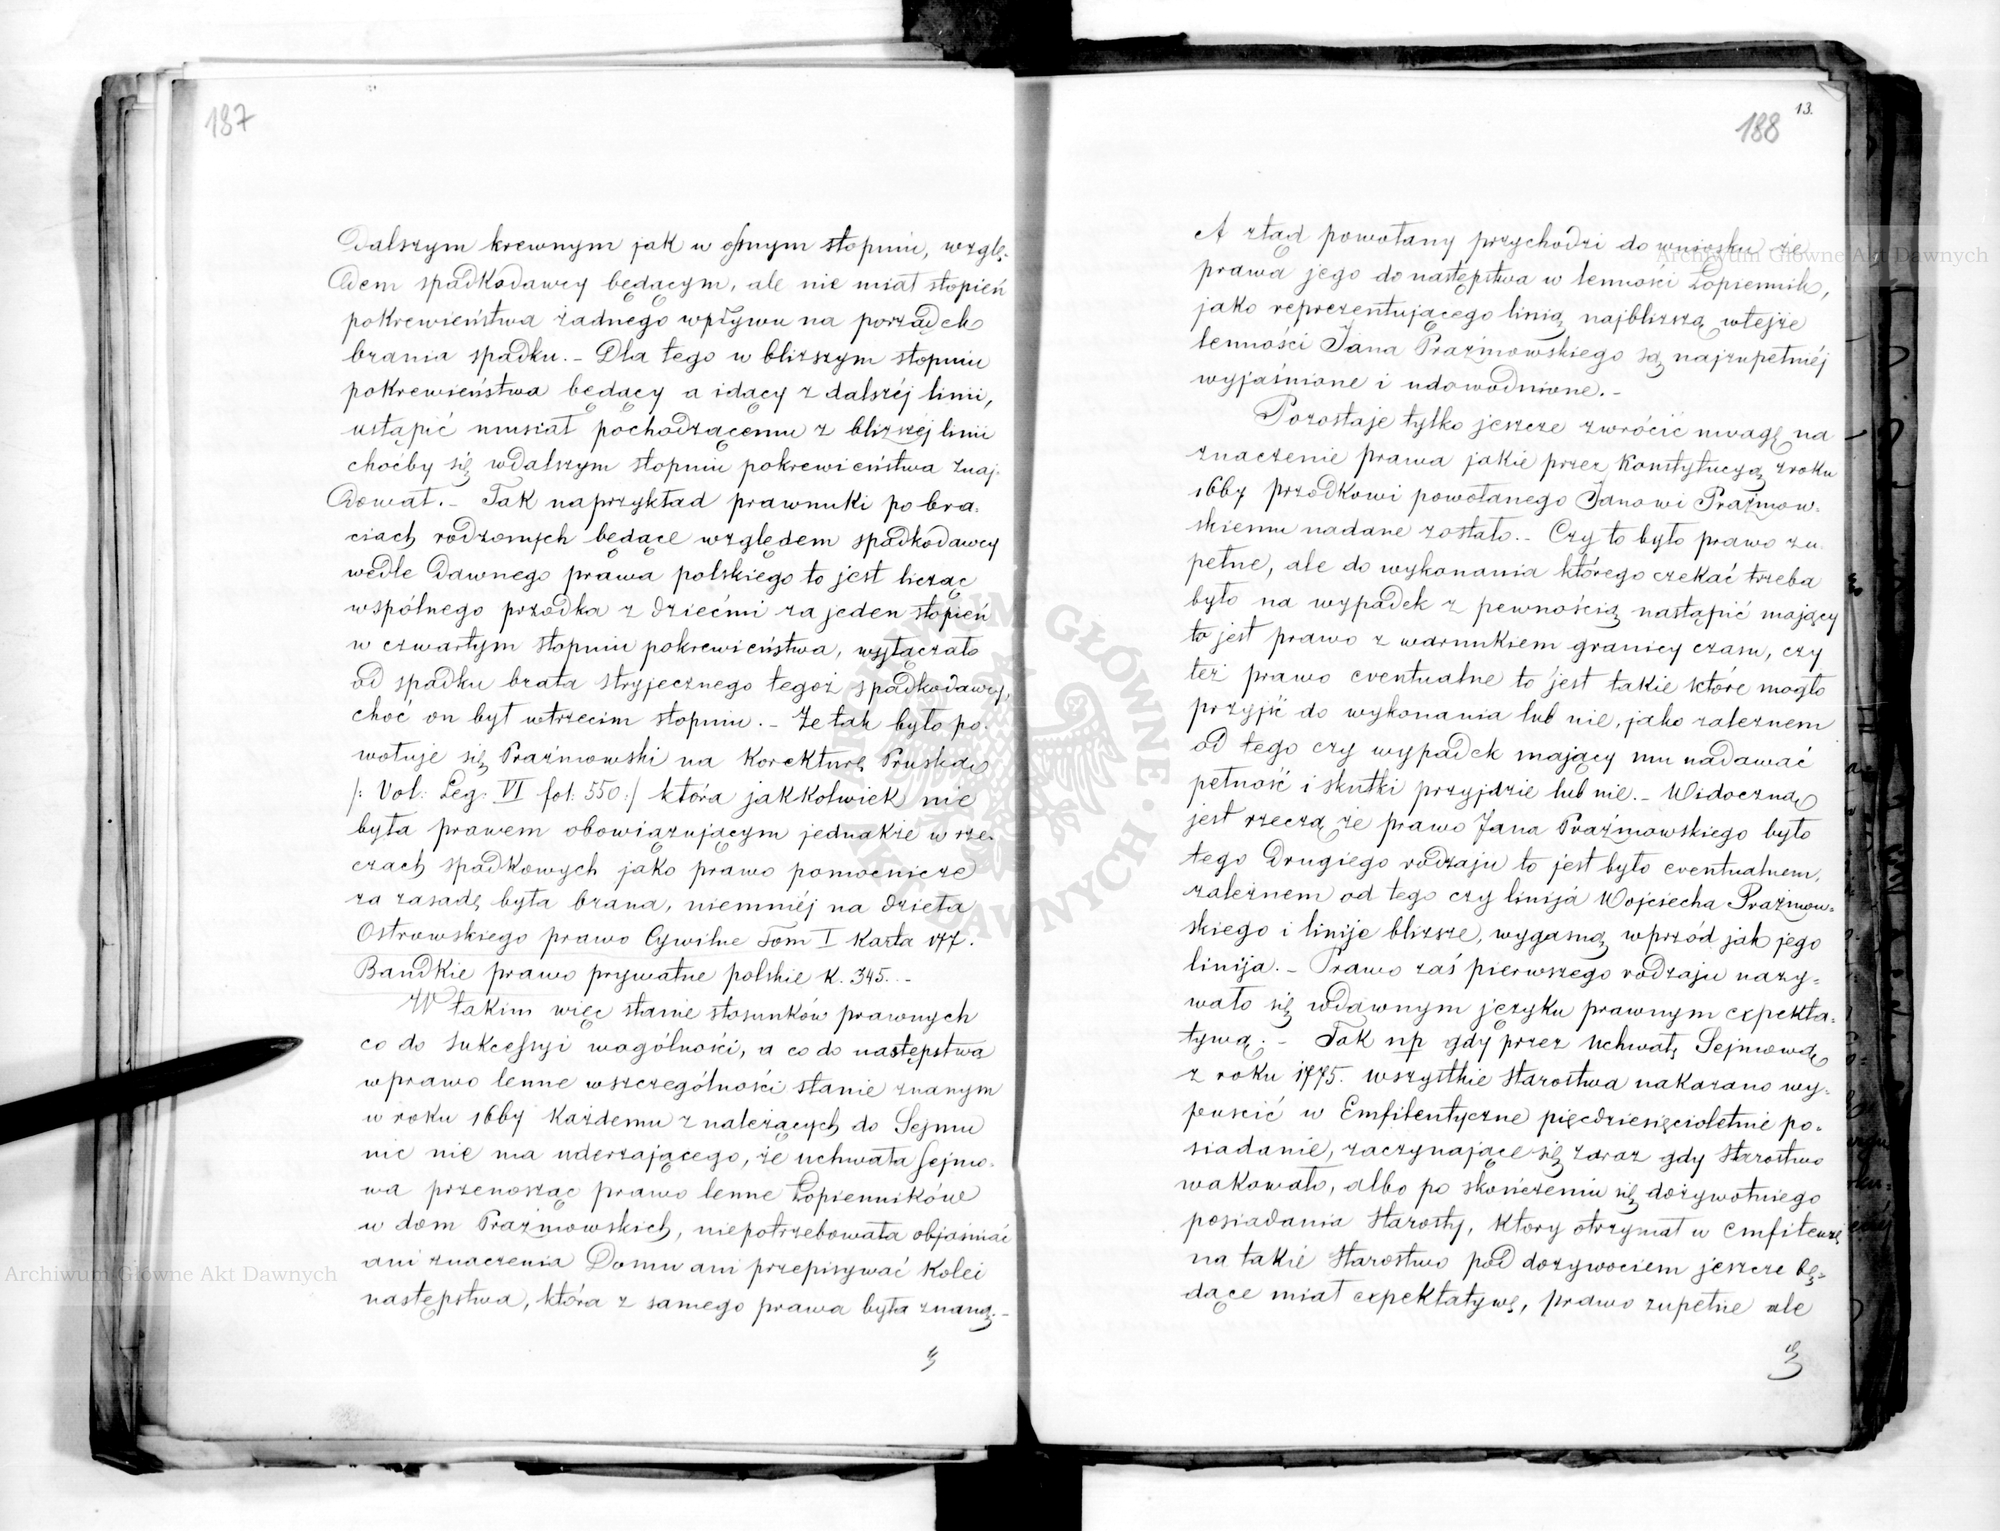 187
dalszym krewnym jak w ósmym stopniu, wzglę-
dem spadkodawcy będącym, ale nie miał stopień
pokrewieństwa żadnego wpływu na porządek
brania spadku. – Dla tego w bliższym stopniu
pokrewieństwa będący a idący z dalszéj linii,
ustąpić musiał pochodzącemu z bliższéj linii
choćby się wdalszym stopniu pokrewieństwa znaj-
dował. – Tak naprzykład prawnuki po bra-
ciach rodzonych będące względem spadkodawcy
wedle dawnego prawa polskiego to jest licząc
wspólnego przodka z dziećmi za jeden stopień
w czwartym stopniu pokrewieństwa, wyłączało
od spadku brata stryjecznego tegoż spadkodawcy,
choć on był wtrzecim stopniu. – Że tak było po-
wołuje się Prażmowski na Korekturę Pruską
/: Vol: Leg: VI fol: 550 :/ która jakkolwiek nie
była prawem obowiązującym jednakże w rze-
czach spadkowych jako prawo pomocnicze
za zasadę była brana, niemniéj na dzieła
Ostrowskiego prawo Cywilne Tom I Karta 177.
Bandkie prawo prywatne polskie K. 345. –
W takim więc stanie stosunków prawnych
co do sukcessyi wogólności, a co do następstwa
wprawo lenne wszczególności stanie znanym
w roku 1667 każdemu z należących do Sejmu
nic nie ma uderzającego, że uchwała Sejmo-
wa przenosząc prawo lenne Łopienników
w dom Prażmowskich, niepotrzebowała objaśniać
ani znaczenia Domu ani przepisywać kolei
następstwa, która z samego prawa była znaną. –
13.
188
A ztąd powołany przychodzi do wniosku że
prawa jego do następstwa w lenności Łopiennik,
jako reprezentującego linią najbliższą wtejże
lenności Jana Prażmowskiego są najzupełniéj
wyjaśnione i udowodnione. –
Pozostaje tylko jeszcze zwrócić uwagę na
znaczenie prawa jakie przez Konstytucyą zroku
1667 przodkowi powołanego Janowi Prażmow-
skiemu nadane zostało. – Czy to było prawo zu-
pełne, ale do wykonania którego czekać trzeba
było na wypadek z pewnością nastąpić mający
to jest prawo z warunkiem granicy czasu, czy
też prawo eventualne to jest takie które mogło
przyjść do wykonania lub nie, jako zależnem
od tego czy wypadek mający mu nadawać
pełność i skutki przyjdzie lub nie. – Widoczną
jest rzeczą że prawo Jana Prażmowskiego było
tego drugiego rodzaju to jest było eventualnem,
zależnem od tego czy linijá Wojciecha Prażmow-
skiego i linije bliższe, wygasną wprzód jak jego
linija. – Prawo zaś pierwszego rodzaju nazy-
wało się wdawnym języku prawnym expekta-
tywą. – Tak np gdy przez Uchwałę Sejmową
z roku 1775. wszystkie Starostwa nakazano wy-
puścić w Emfiteutyczne pięćdziesięcioletnie po-
siadanie, zaczynające się zaraz gdy Starostwo
wakowało, albo po skończeniu się dożywotniego
posiadania Starosty, który otrzymał w emfiteuzę
na takie Starostwo pod dożywociem jeszcze bę-
dące miał expektatywę, prawo zupełne ale
Archiwum Główne Akt Dawnych
Archiwum Główne Akt Dawnych
ARCHIWUM GŁÓWNE AKT DAWNYCH